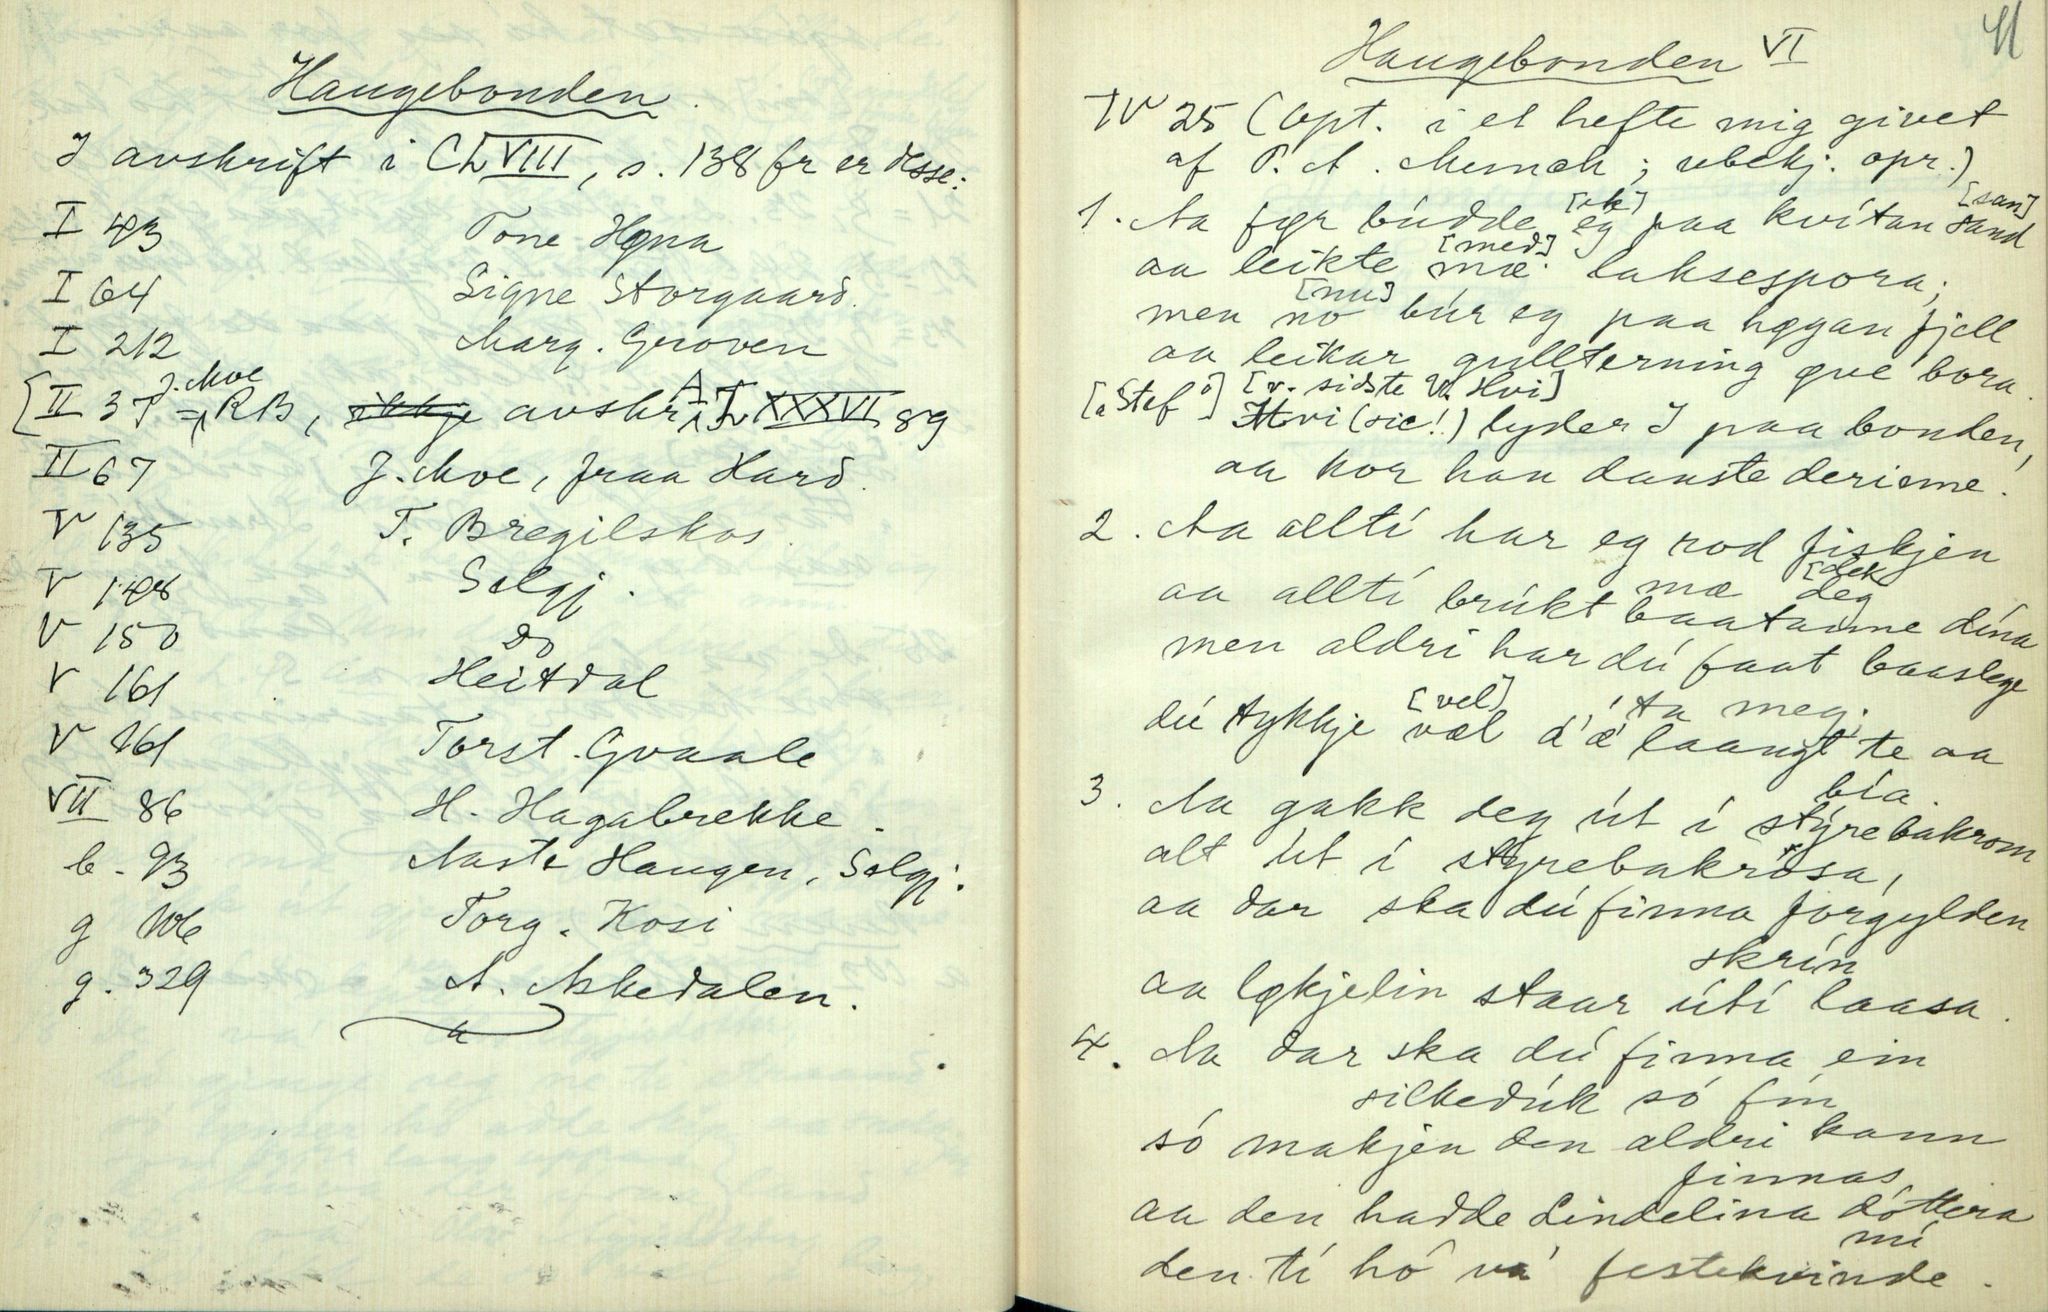 Haugebonden.
I avskrift i Ch VIII, s. 138 fr er desse:
I 43 Tone Høgna
I 64 Signe Storgaard.
I 212 Marg. Groven
J. Moe
[II 37 = RB, ikkje avskr. i XXXVI 89
II 67 J. Moe, fraa Hard.
V 135 T. Bregilskas.
V 148 Selgj.
V 150 Do
V 161 Heitdal
V 161 Torst. Gvaale
VII 86 H. Hagabrekke.
b. 93 Aaste Haugen, Selgj.
g 106 Torg. Kosi
g. 329 A. Askedalen.
41
Haugebonden VI
IV 25 (Opt. i et hefte mig givet
af P. A. Munch; ubekj. opr.)
[ek] [san]
1. Aa før búdde eg paa kvítan sand
[med]
aa leikte mæ laksespora;
[nu]
men no búr eg paa høgan fjell
aa leikar gullterning øve bora.
[Stef] [v. sidste Vh Hvi]
Hvi (sic!) lyder I paa bonden,
aa kor han danste derinne.
2. Aa alltí har eg rod fiskjen
mæ [dek] deg
aa alltí brúkt baatanne dína
men aldri har dú faat baaslege
[vel] ta meg;
dú tykkje væl d'æ laangt te aa
bía.
3. Aa gakk deg út í stýrebakrom
alt út í styrebakrósa,
aa dar ska dú finna forgylden
skrín
aa løkjelin staar útí laasa.
4. Aa dar ska dú finna ein
silkedúk só fín
só makjen den aldri kann
finnas
aa den hadde Lindelina dóttera
mí
den tí hó vá festekvinde.